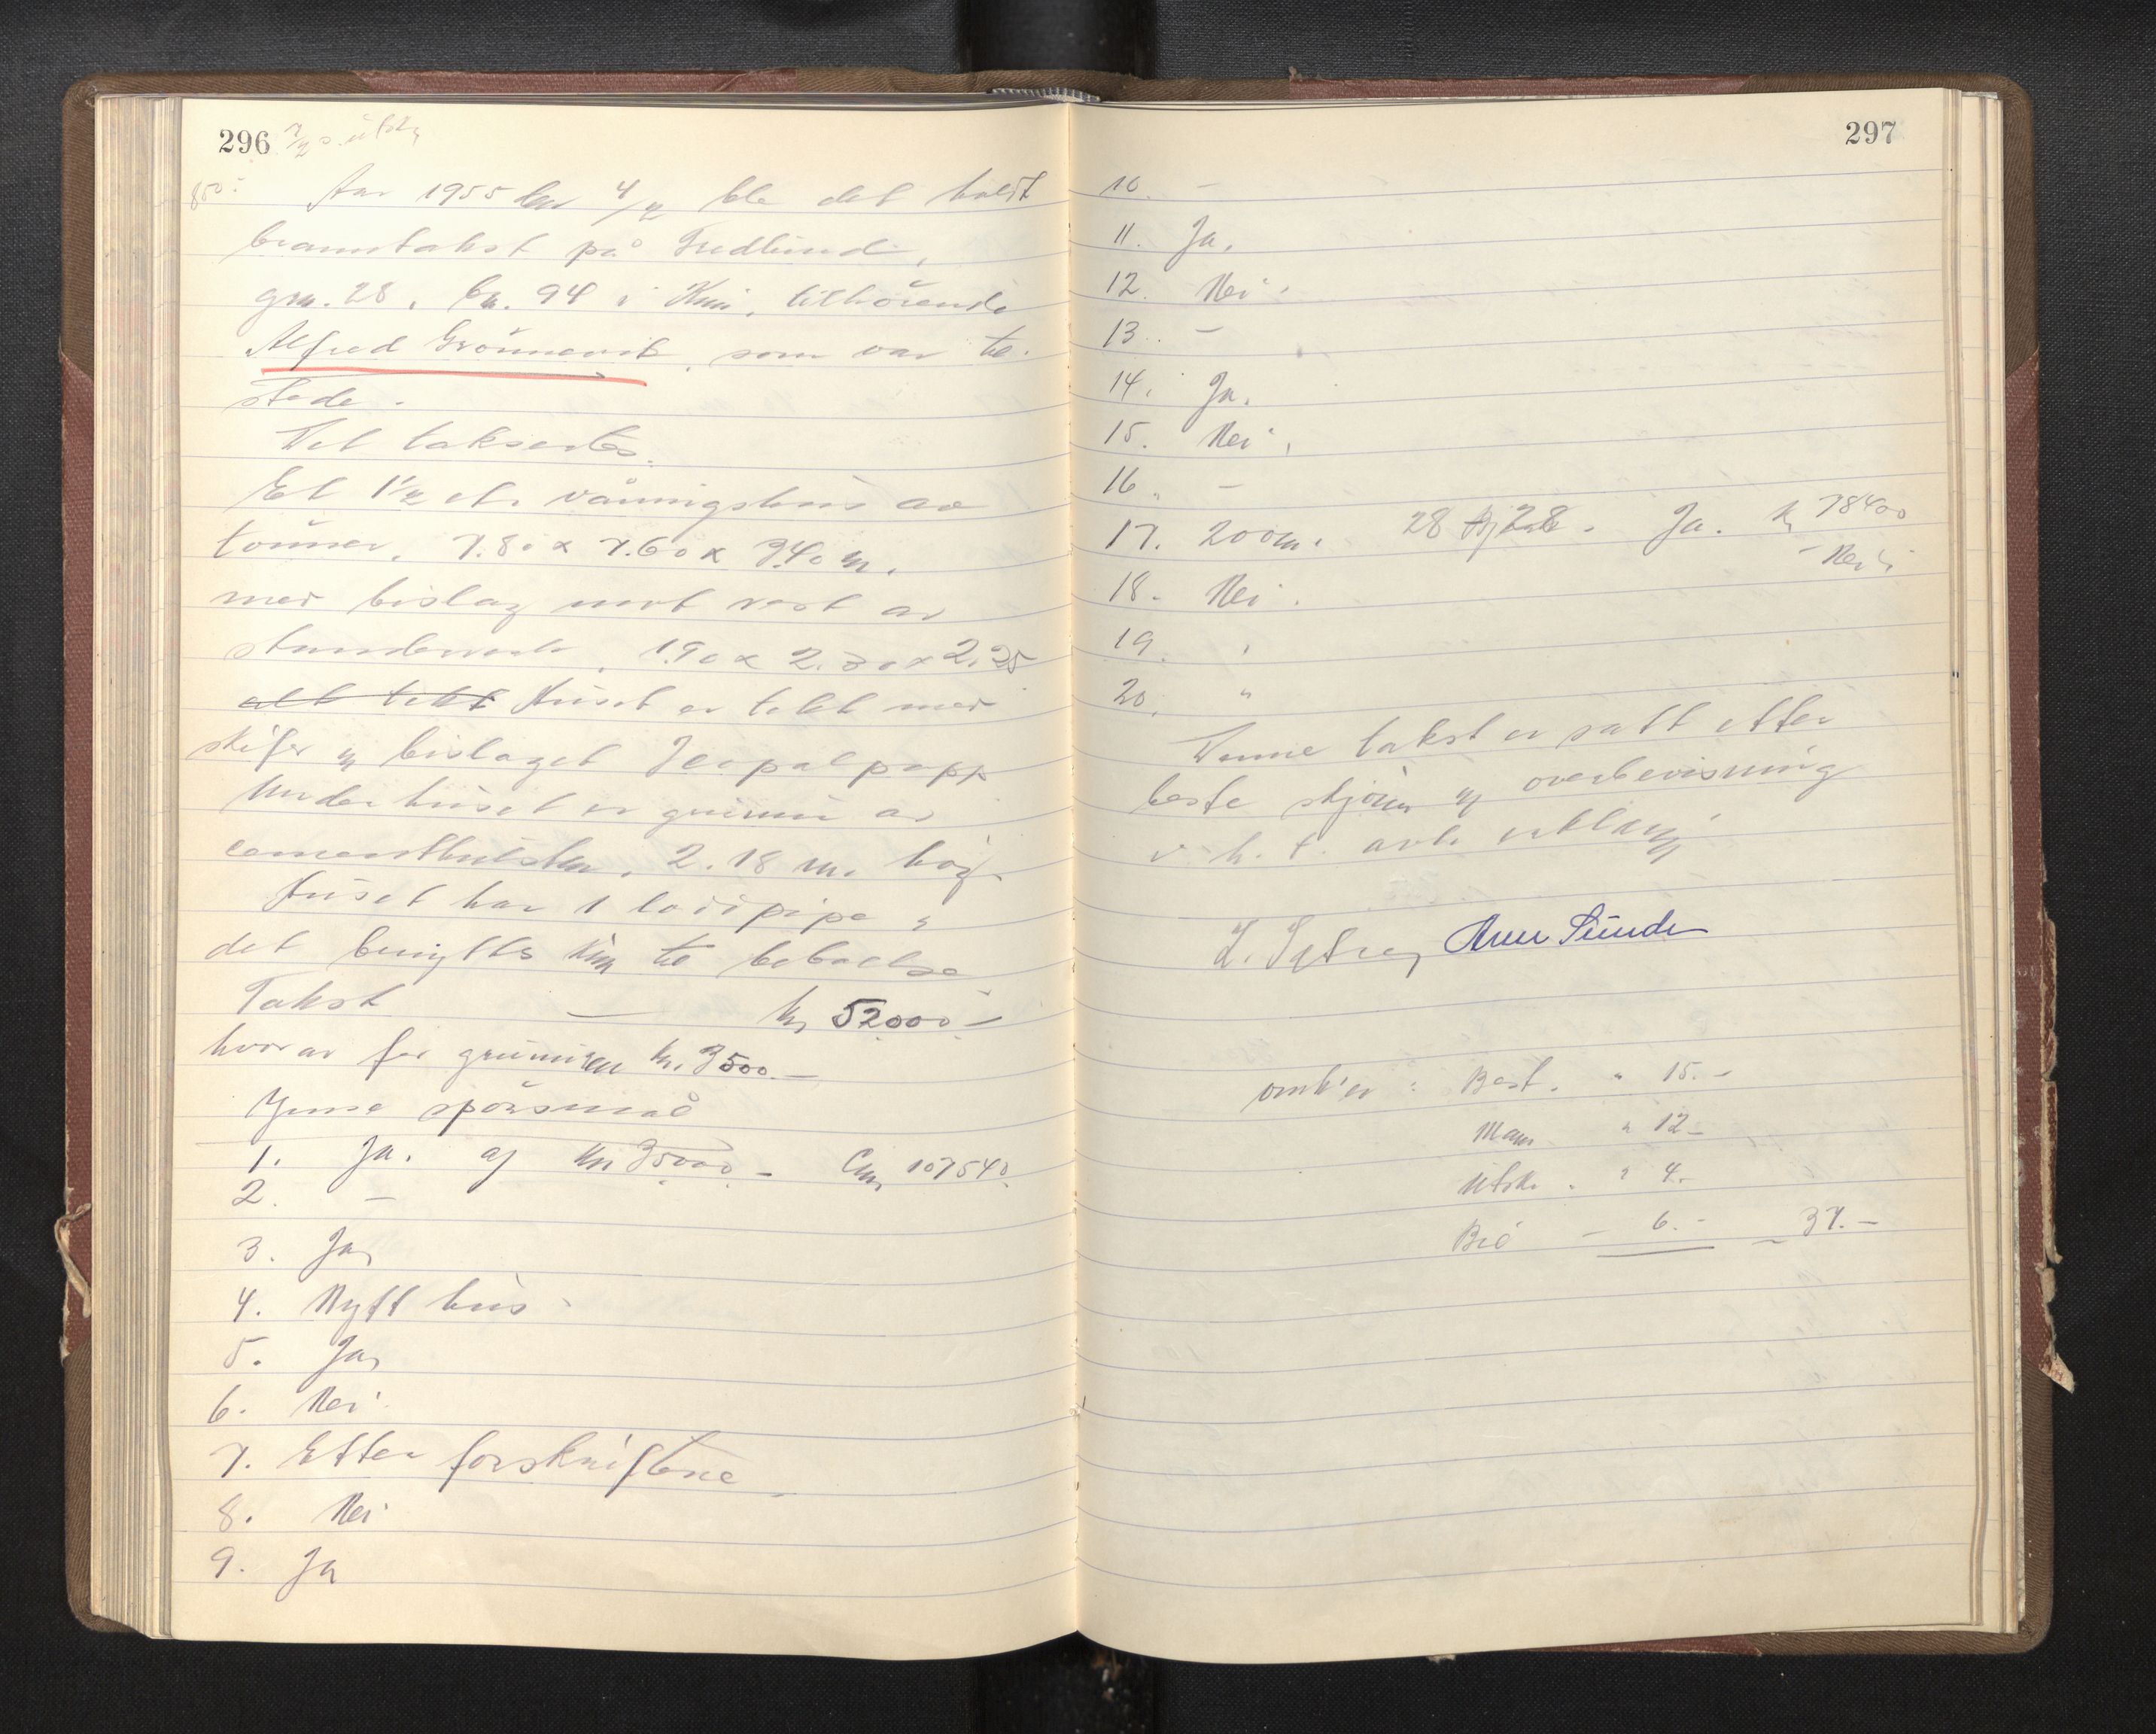 296
Aar 1955 den 4/2 ble det holdt
branntakst på Fredlund,
gnr. 28, bn. 94 i tilhörende
Alfred Grönnevik, som var til
stede.
Det takseertes.
Et 1 1/2 et. våningshus av
tömmer. 7.80 x 7.60 x 3.40 m.
med bislag mot vest av
1.90 x 2.30 x 2.25
alt tekt Huset er tekt med
skifer og bislaget papp
Under huset er grunn av
2.18 m. høy.
Huset har 1 pipe og
det benyttes kun til beboelse
Takst — kr 52000 –
hvorav for grunnen kr. 3500.–
spörsmål
1. Ja. af kr 35000 – 107540.
2. –
3. Ja
4. Nytt hus
5. Ja
6. Nei
7. Etter forskriftene
8. Nei
9. Ja
297
10. –
11. Ja.
12. Nei.
13. –
14. Ja.
15. Nei.
16. –
17. 200 m. 28 Ja. kr 78400
– Nei.
18. Nei.
19. "
20. "
Denne takst er satt etter
beste skjönn og overbevisning
i h. t. avl. erklæring
Sunde
omk'er : Best. " 15.–
Mann " 12–
Utskr. " 4.
– 6.– – 37.–